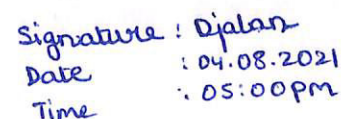 Signature : Djalan
Date : 04.08.2021
Time : 05:00pm